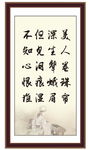 美人卷珠帘
深坐颦蛾眉
但见泪痕湿
不知心恨谁